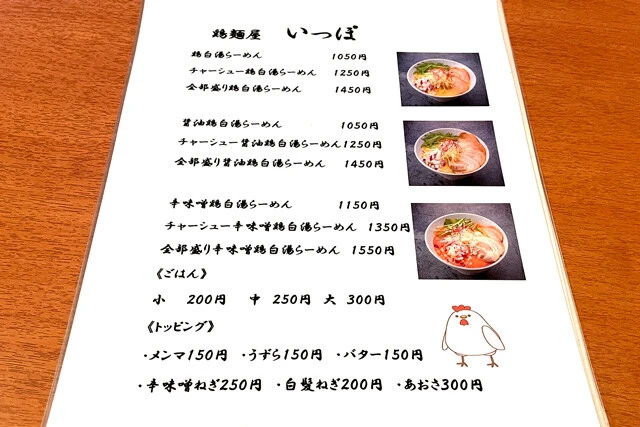 鶏麺屋 いっぽ
鶏白湯らーめん 1050円
チャーシュー鶏白湯らーめん 1250円
全部盛り鶏白湯らーめん 1450円
醤油鶏白湯らーめん 1050円
チャーシュー醤油鶏白湯らーめん 1250円
全部盛り醤油鶏白湯らーめん 1450円
辛味噌鶏白湯らーめん 1150円
チャーシュー辛味噌鶏白湯らーめん 1350円
全部盛り辛味噌鶏白湯らーめん 1550円
《ごはん》
小 200円 中 250円 大 300円
《トッピング》
・メンマ150円 ・うずら150円 ・バター150円
・辛味噌ねぎ250円 ・白髪ねぎ200円 ・あおさ300円